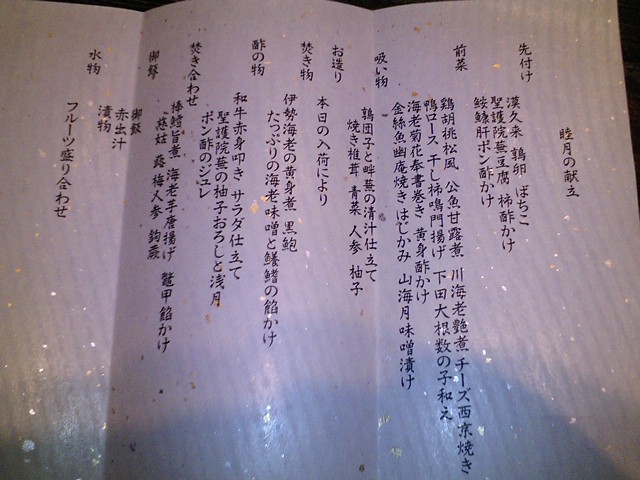 睦月の献立
先付け
漢久来 鶉卵 ばちこ
聖護院蕪豆腐 柿酢かけ
鮟鱇肝ポン酢かけ
前菜
鶏胡桃松風 公魚甘露煮 川海老艶煮 チーズ西京焼き
鴨ロース 干し柿鳴門揚げ 下田大根数の子和え
海老菊花奉書巻き 黄身酢かけ
金絲魚幽庵焼き はじかみ 山海月味噌漬け
吸い物
鶉団子と畔蕪の清汁仕立て
焼き椎茸 青菜 人参 柚子
お造り
本日の入荷により
焚き物
伊勢海老の黄身煮 黒鮑
たっぷりの海老味噌と鱶鰭の餡かけ
酢の物
和牛赤身叩き サラダ仕立て
聖護院蕪の柚子おろしと浅月
ポン酢のジュレ
焚き合わせ
棒鱈旨煮 海老芋唐揚げ 鼈甲餡かけ
慈姑 蕗 梅人参 鈎蕨
御飯
御飯
赤出汁
漬物
水物
フルーツ盛り合わせ